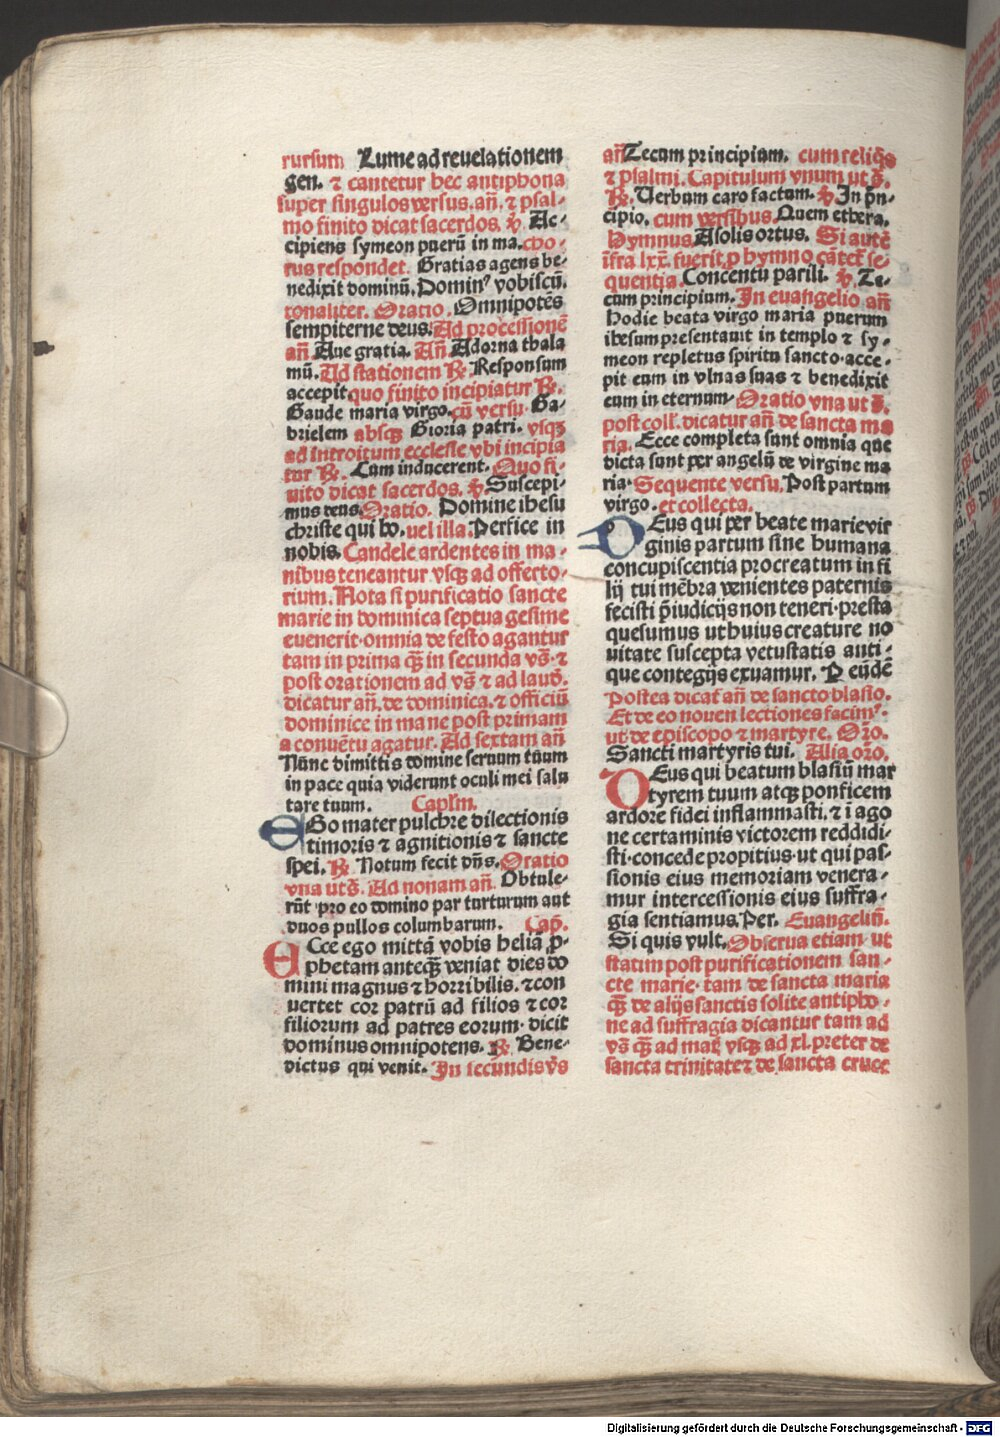 rursum Lume ad reuelationem
gen. ⁊ cantetur hec antiphona
super singulos versus. an̄. ⁊ psal⸗
mo finito dicat sacerdos. ꝟ Ac⸗
cipiens symeon puerū in ma. cho⸗
rus respondet. Gratias agens be⸗
nedixit dominū. Dominꝰ vobiscū.
tonaliter. Oratio. Omnipotēs
sempiterne deus. Ad processionē
an̄. Aue gratia. An̄. Adorna thala
mū. Ad stationem ℟. Responsum
accepit quo finito incipiatur ℟.
Gaude maria virgo. cū versu. Ga⸗
brielem absqꝫ Gloria patri. vsqꝫ
ad introitum ecclesie vbi incipia
tur ℟. Cum inducerent. Quo fi⸗
nito dicat sacerdos. ꝟ Suscepi⸗
mus deus. Oratio. Domine ihesu
christe qui ho. uel illa. Perfice in
nobis. Candele ardentes in ma⸗
nibus teneantur vsqꝫ ad offerto⸗
rium. Nota si purificatio sancte
marie in dominica septuagesime
euenerit. omnia de festo agantur
tam in prima qꝫ̄ in secunda vs̄. ⁊
post orationem ad vs̄ ⁊ ad laud̄.
dicatur an̄. de dominica. ⁊ officiū
dominice in mane post primam
a conuētu agatur. Ad sextam an̄
Nūnc dimittis domine seruum tuum
in pace quia viderunt oculi mei salu
tare tuum. Caplm̄.
EGo mater pulchre dilectionis
timoris ⁊ agnitionis ⁊ sancte
spei. ℟. Notum fecit dn̄s. Oratio
vna ut s̄. Ad nonam an̄. Obtule⸗
rūt pro eo domino par turturum aut
duos pullos columbarum. Cap̄.
ECce ego mittā vobis heliā ꝓ⸗
phetam anteqꝫ̄ veniat dies do
mini magnus ⁊ horribilis. ⁊ con
uertet cor patrū ad filios ⁊ cor
filiorum ad patres eorum. dicit
dominus omnipotens. ℟ Bene⸗
dictus qui venit. In secundis vs̄
an̄ Tecum principium. cum reliqis
⁊ psalmi. Capitulum vnum ut s̄.
℟. Uerbum caro factum. ꝟ In pn̄⸗
cipio. cum versibus. Quem ethera.
Hymnus. A solis ortus. Si autē
īfra lxx̄. fuerit. ꝓ hymno cātet᷑ se⸗
quentia. Concentu parili. ꝟ. Te⸗
cum principium. In euangelio an̄
Hodie beata virgo maria puerum
ihesum presentauit in templo ⁊ sy⸗
meon repletus spiritu sancto. acce⸗
pit eum in vlnas suas ⁊ benedixit
eum in eternum. Oratio vna ut s̄.
post coll. dicatur an̄ de sancta ma
ria. Ecce completa sunt omnia que
dicta sunt per angelū de virgine ma
ria. Sequente versu. Post partum
virgo. et collecta.
DEus qui per beate marie vir
ginis partum sine humana
concupiscentia procreatum in fi
lij tui mēbra venientes paternis
fecisti p̄iudicijs non teneri. presta
quesumus ut huius creature no
uitate suscepta vetustatis anti⸗
que contegijs exuamur. ꝑ eūdē
Postea dicat᷑ an̄ de sancto blasio.
Et de eo nouen lectiones facimꝰ.
ut de episcopo ⁊ martyre. Or̄o.
Sancti martyris tui. Alia or̄o.
DEus qui beatum blasiū mar
tyrem tuum atqꝫ ponficem
ardore fidei inflammasti. ⁊ ī ago
ne certaminis victorem reddidi⸗
sti. concede propitius. ut qui pas⸗
sionis eius memoriam venera⸗
mur intercessionis eius suffra⸗
gia sentiamus. Per. Euangeliū.
Si quis vult. Obserua etiam. ut
statim post purificationem san⸗
cte marie. tam de sancta maria
qꝫ̄ de alijs sanctis solite antipho⸗
ne ad suffragia dicantur tam ad
vs̄ qꝫ̄ ad mat᷑ vsqꝫ ad xl. preter de
sancta trinitate ⁊ de sancta cruce
Digitalisierung gefördert durch die Deutsche Forschungsgemeinschaft - DFG